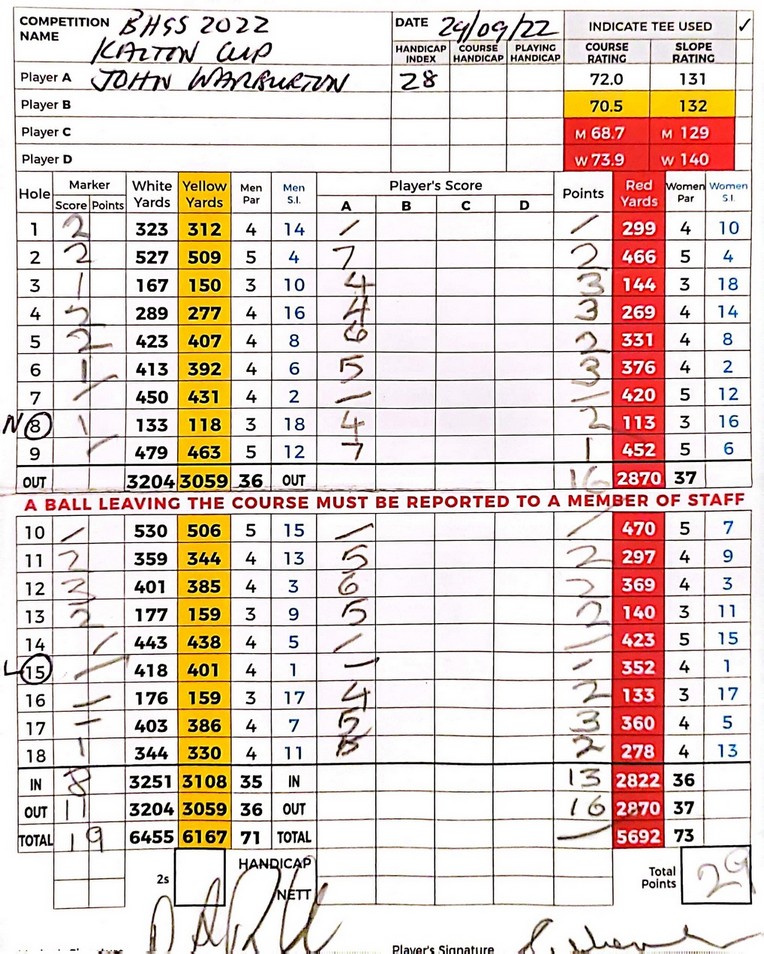 COMPETITION NAME BHGS 2022 DATE 29/09/22 INDICATE TEE USED ✓
KALTON CUP HANDICAP INDEX COURSE HANDICAP PLAYING HANDICAP COURSE RATING SLOPE RATING
Player A JOHN WARBURTON 28 72.0 131
Player B 70.5 132
Player C M 68.7 M 129
Player D W 73.9 W 140
Hole Marker Score Points White Yards Yellow Yards Men Par Men S.I. Player's Score A B C D Points Red Yards Women Par Women S.I.
1 2 323 312 4 14 / / 299 4 10
2 2 527 509 5 4 7 2 466 5 4
3 1 167 150 3 10 4 3 144 3 18
4 2 289 277 4 16 4 3 269 4 14
5 2 423 407 4 8 6 2 331 4 8
6 1 413 392 4 6 5 3 376 4 2
7 / 450 431 4 2 — / 420 5 12
N 8 1 133 118 3 18 4 2 113 3 16
9 / 479 463 5 12 7 1 452 5 6
OUT 3204 3059 36 OUT 16 2870 37
A BALL LEAVING THE COURSE MUST BE REPORTED TO A MEMBER OF STAFF
10 / 530 506 5 15 / / 470 5 7
11 2 359 344 4 13 5 2 297 4 9
12 3 401 385 4 3 6 2 369 4 3
13 2 177 159 3 9 5 2 140 3 11
14 / 443 438 4 5 / / 423 5 15
L 15 — 418 401 4 1 — - 352 4 1
16 — 176 159 3 17 4 2 133 3 17
17 — 403 386 4 7 5 3 360 4 5
18 1 344 330 4 11 5 2 278 4 13
IN 8 3251 3108 35 IN 13 2822 36
OUT 11 3204 3059 36 OUT 16 2870 37
TOTAL 19 6455 6167 71 TOTAL — 5692 73
2s HANDICAP Total Points 29
NETT
Player's Signature